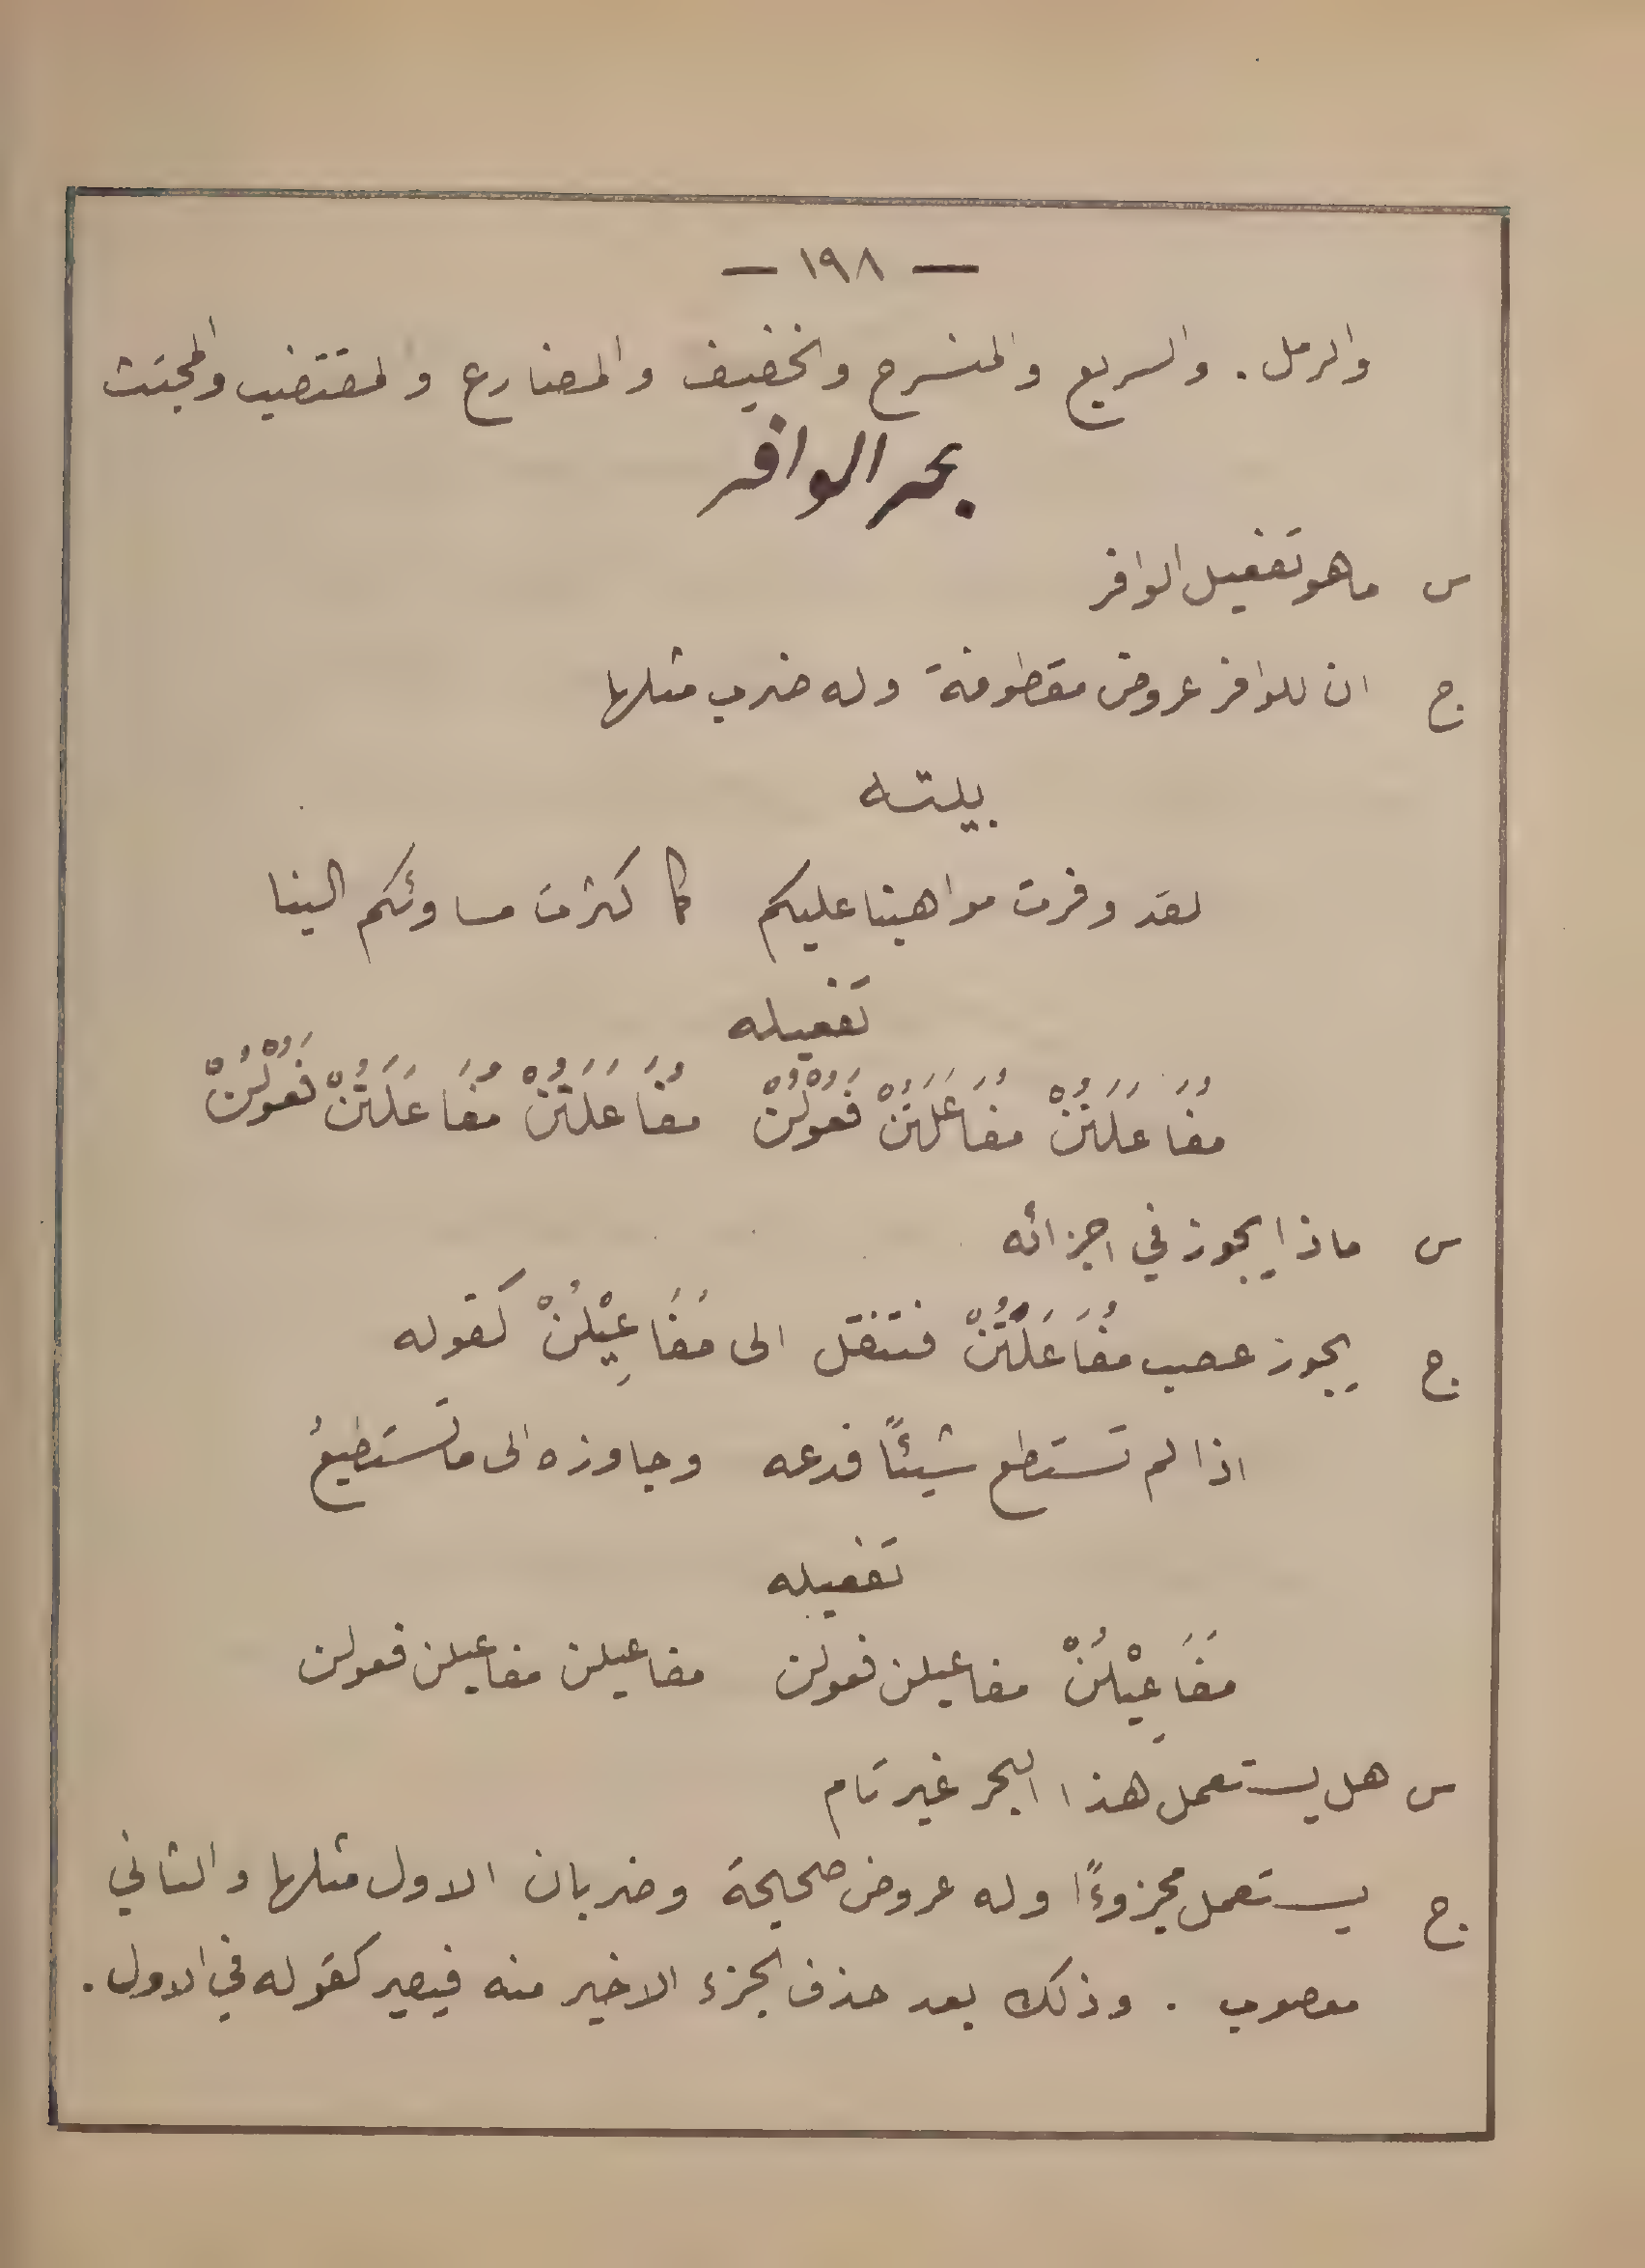 — ١٩٨ —
والرمل . والسريع والمنسرح والخفيف والمضارع والمقتضب والمجتث
بحر الوافر
س ما هو تفعيل الوافر
ج ان للوافر عروض مقطوفة وله ضرب مثلها
بيته
لقد وفرت مواهبنا عليكم كما كثرت مساوئكم الينا
تفعيله
مُفَاعَلَتُنْ مُفَاعَلَتُنْ فَعُوْلُنْ مُفَاعَلَتُنْ مُفَاعَلَتُنْ فَعُوْلُنْ
س ماذا يجوز في اجزائه
ج يجوز عصب مُفَاعَلْتُنْ فتنقل الى مَفَاعِيْلُنْ كقوله
اذا لم تستطع شيئًا فدعه وجاوزه الى ما تستطيعُ
تفعيله
مَفَاعِيْلُنْ مفاعيلن فعولن مفاعيلن مفاعيلن فعولن
س هل يستعمل هذا البحر غير تام
ج يستعمل مجزوءًا وله عروض صحيحة وضربان الاول مثلها والثاني
معصوب . وذلك بعد حذف الجزء الاخير منه فيصير كقوله في الاول .